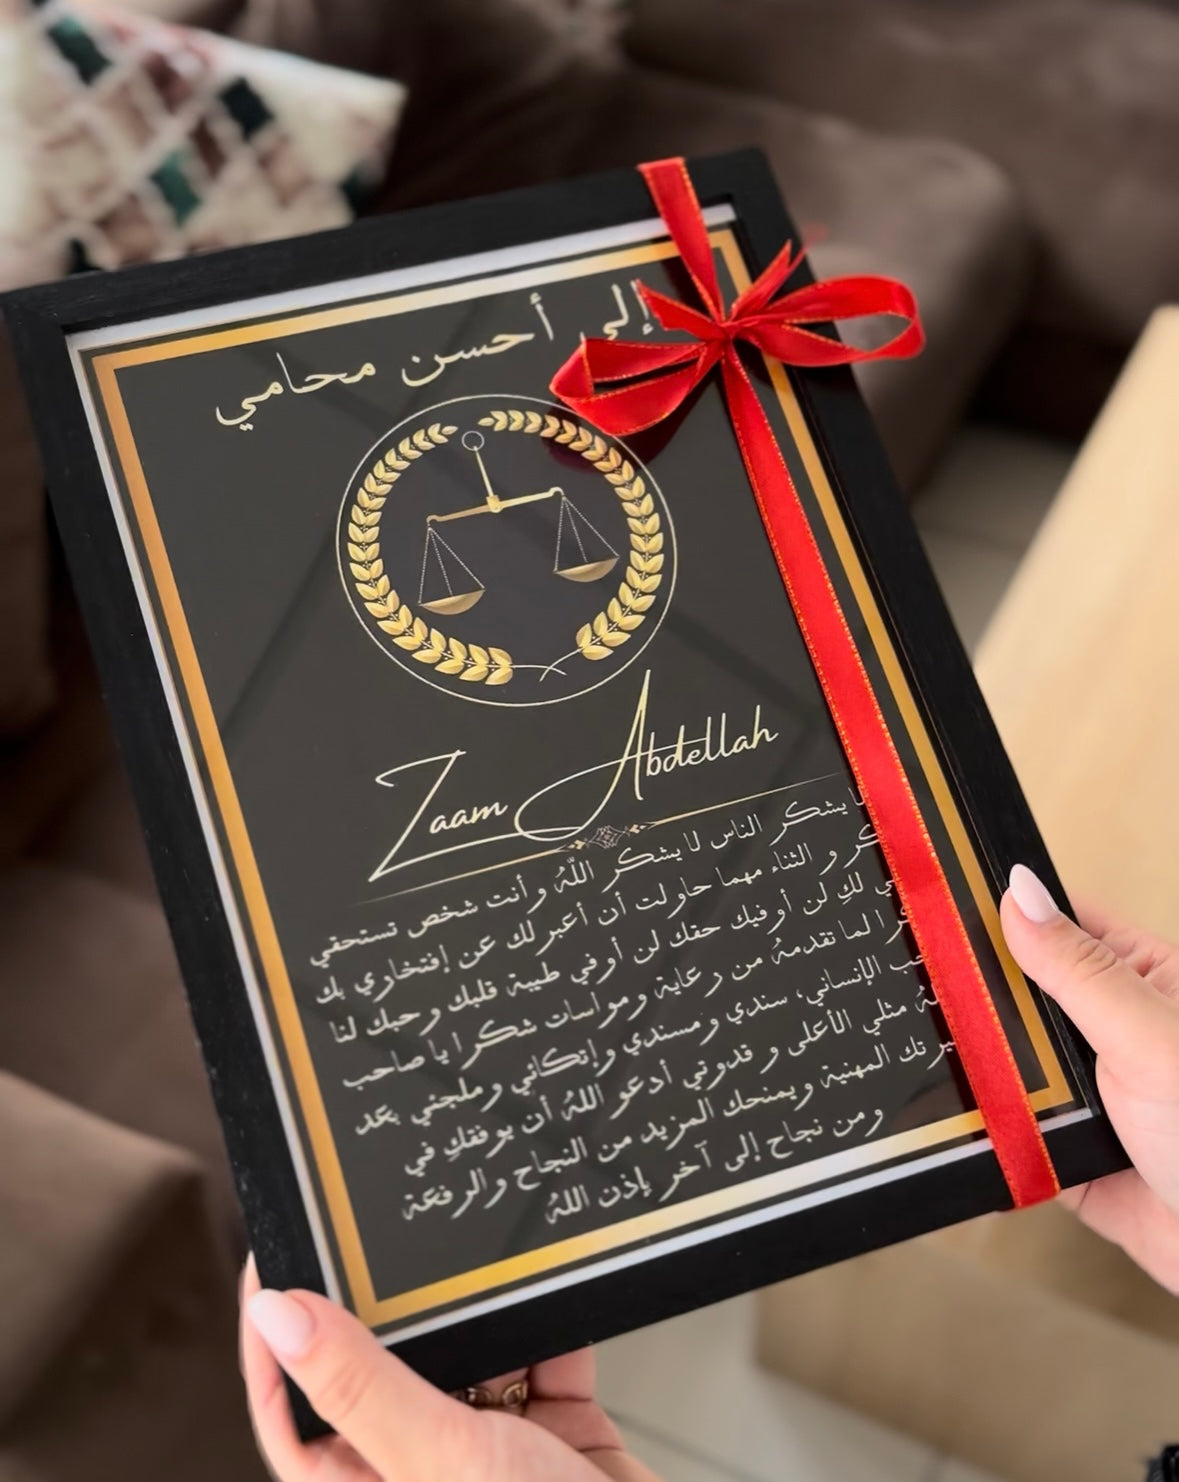 إلى أحسن محامي
Zaam Abdellah
لا يشكر الناس لا يشكر اللّهُ و أنت شخص تستحقي
و الثناء مهما حاولت أن أعبر لك عن إفتخاري بك
لكِ لن أوفيك حقك لن أوفي طيبة قلبك و حبك لنا
لما تقدمهُ من رعاية ومواسات شكرا يا صاحب
الإنساني، سندي و مسندي وإتكائي وملجئي بعد
مثلي الأعلى و قدوتي أدعو اللهُ أن يوفقكِ في
المهنية ويمنحك المزيد من النجاح والرفعة
ومن نجاح إلى آخر بإذن اللهُ